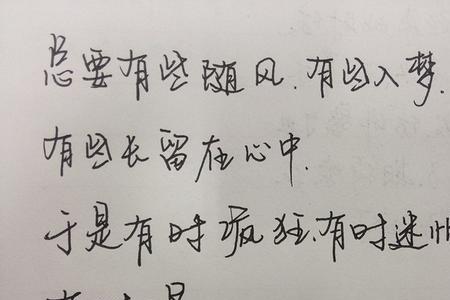 总要有些随风.有些入梦.
有些长留在心中.
于是有时疯狂.有时迷